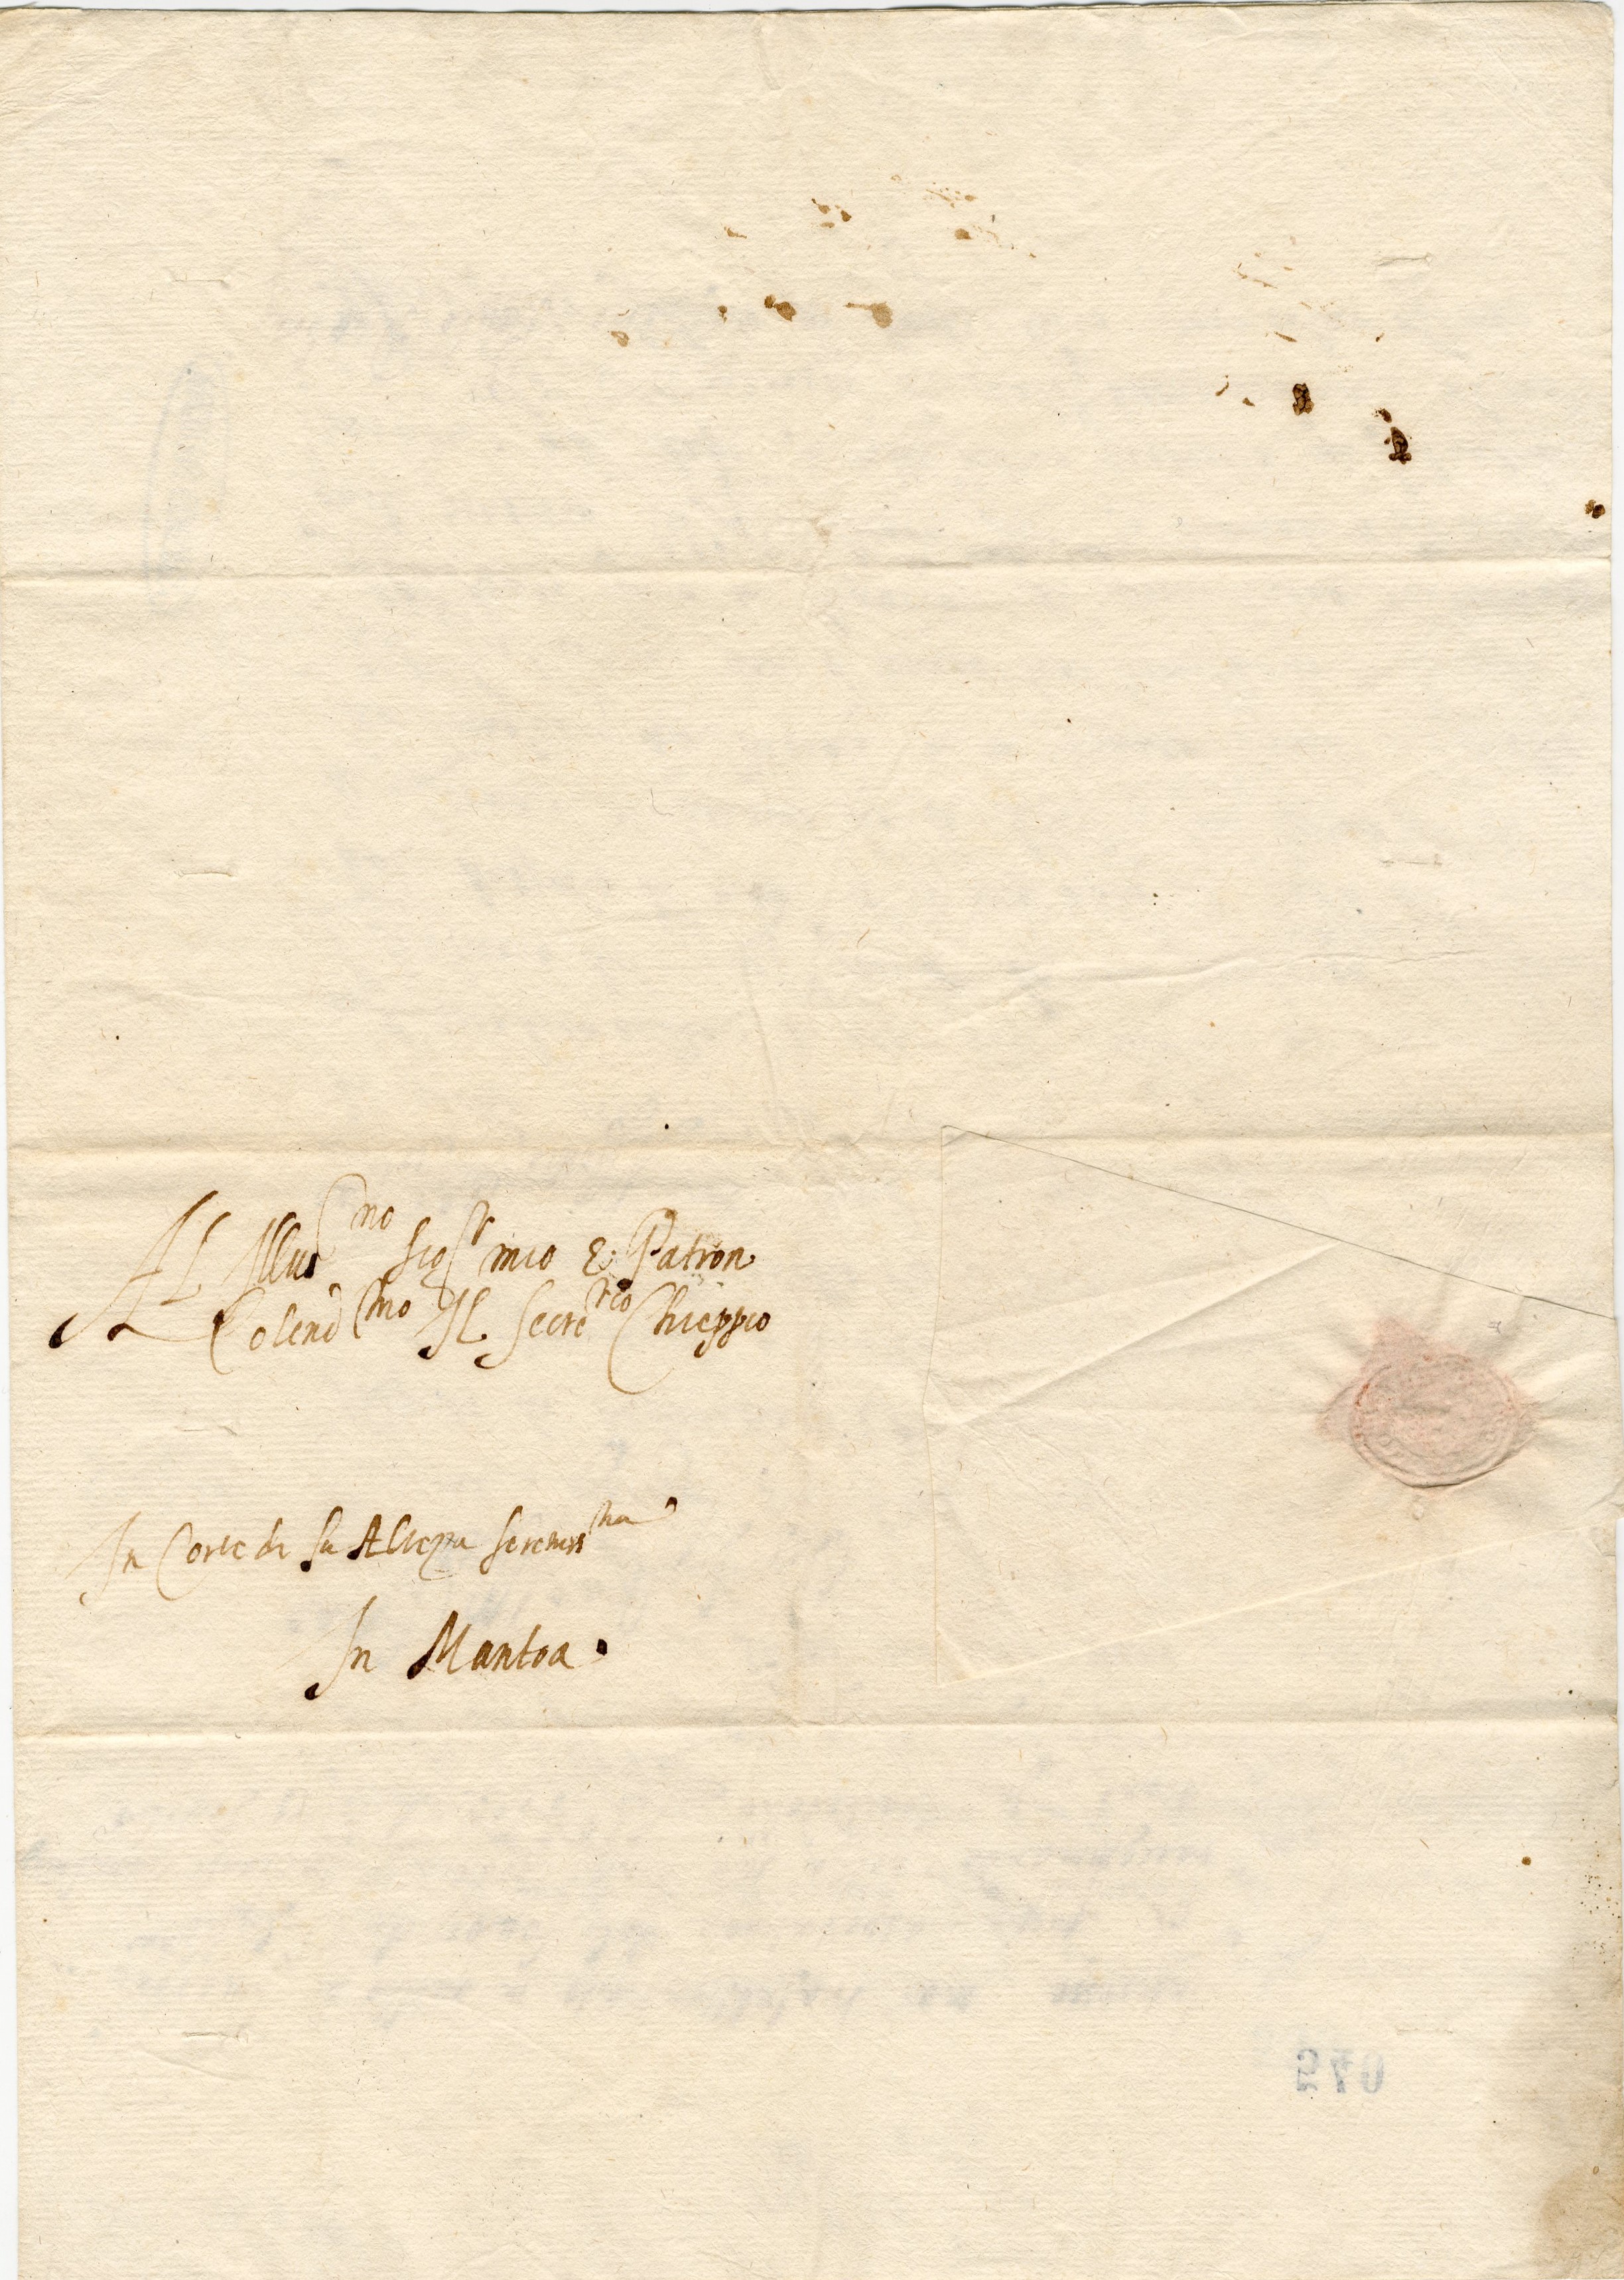 Al Illus.mo Sig.r mio e Patron
Colend.mo Il Secre.rio Chieppio
In Corte di Su Altezza Sereniss.ma
In Mantoa.
540